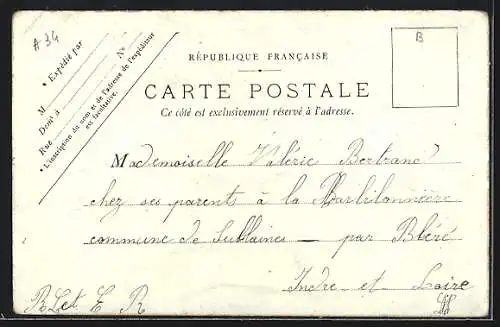 A 34
B
RÉPUBLIQUE FRANÇAISE
CARTE POSTALE
Ce côté est exclusivement réservé à l'adresse.
• Expédié par
M
Domt à
Rue No
• L'inscription du nom et de l'adresse de l'expéditeur
est facultative.
Mademoiselle Valérie Bertrand
chez ses parents à la
commune de Sublaines — par Bléré
Indre-et-Loire